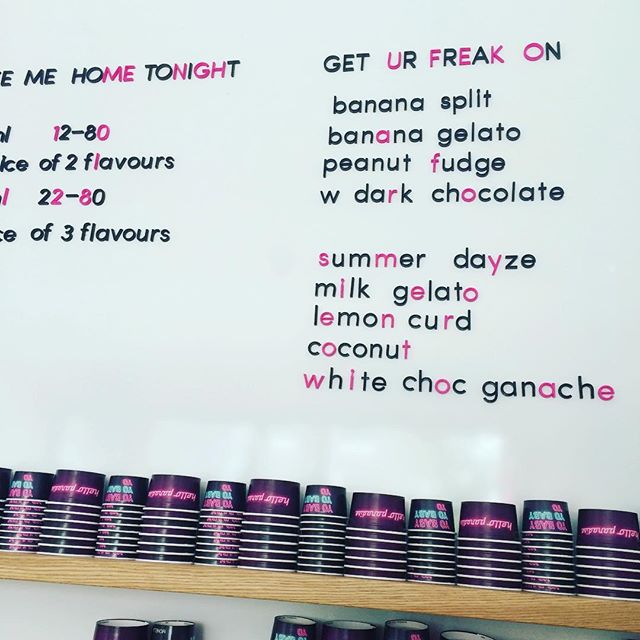 ME HOME TONIGHT
12-80
of 2 flavours
22-80
of 3 flavours
GET UR FREAK ON
banana split
banana gelato
peanut fudge
w dark chocolate
summer dayze
milk gelato
lemon curd
coconut
white choc ganache